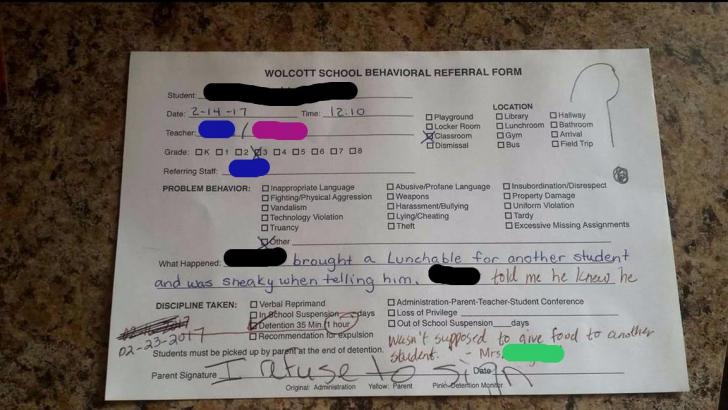 WOLCOTT SCHOOL BEHAVIORAL REFERRAL FORM
Student:
Date: 2-14-17 Time: 12:10
Teacher: /
Grade: K 1 2 3 4 5 6 7 8
Referring Staff:
LOCATION
Playground Library Hallway
Locker Room Lunchroom Bathroom
Classroom Gym Arrival
Dismissal Bus Field Trip
PROBLEM BEHAVIOR:
Inappropriate Language Abusive/Profane Language Insubordination/Disrespect
Fighting/Physical Aggression Weapons Property Damage
Vandalism Harassment/Bullying Uniform Violation
Technology Violation Lying/Cheating Tardy
Truancy Theft Excessive Missing Assignments
Other
What Happened: brought a Lunchable for another student
and was sneaky when telling him. told me he knew he
wasn't supposed to give food to another
student. - Mrs.
DISCIPLINE TAKEN: Verbal Reprimand Administration-Parent-Teacher-Student Conference
In School Suspension days Loss of Privilege
Detention 35 Min. 1 hour Out of School Suspension days
Recommendation for expulsion
02-23-2017
Students must be picked up by parent at the end of detention.
Parent Signature I refuse to sign Date
Original: Administration Yellow: Parent Pink: Detention Monitor